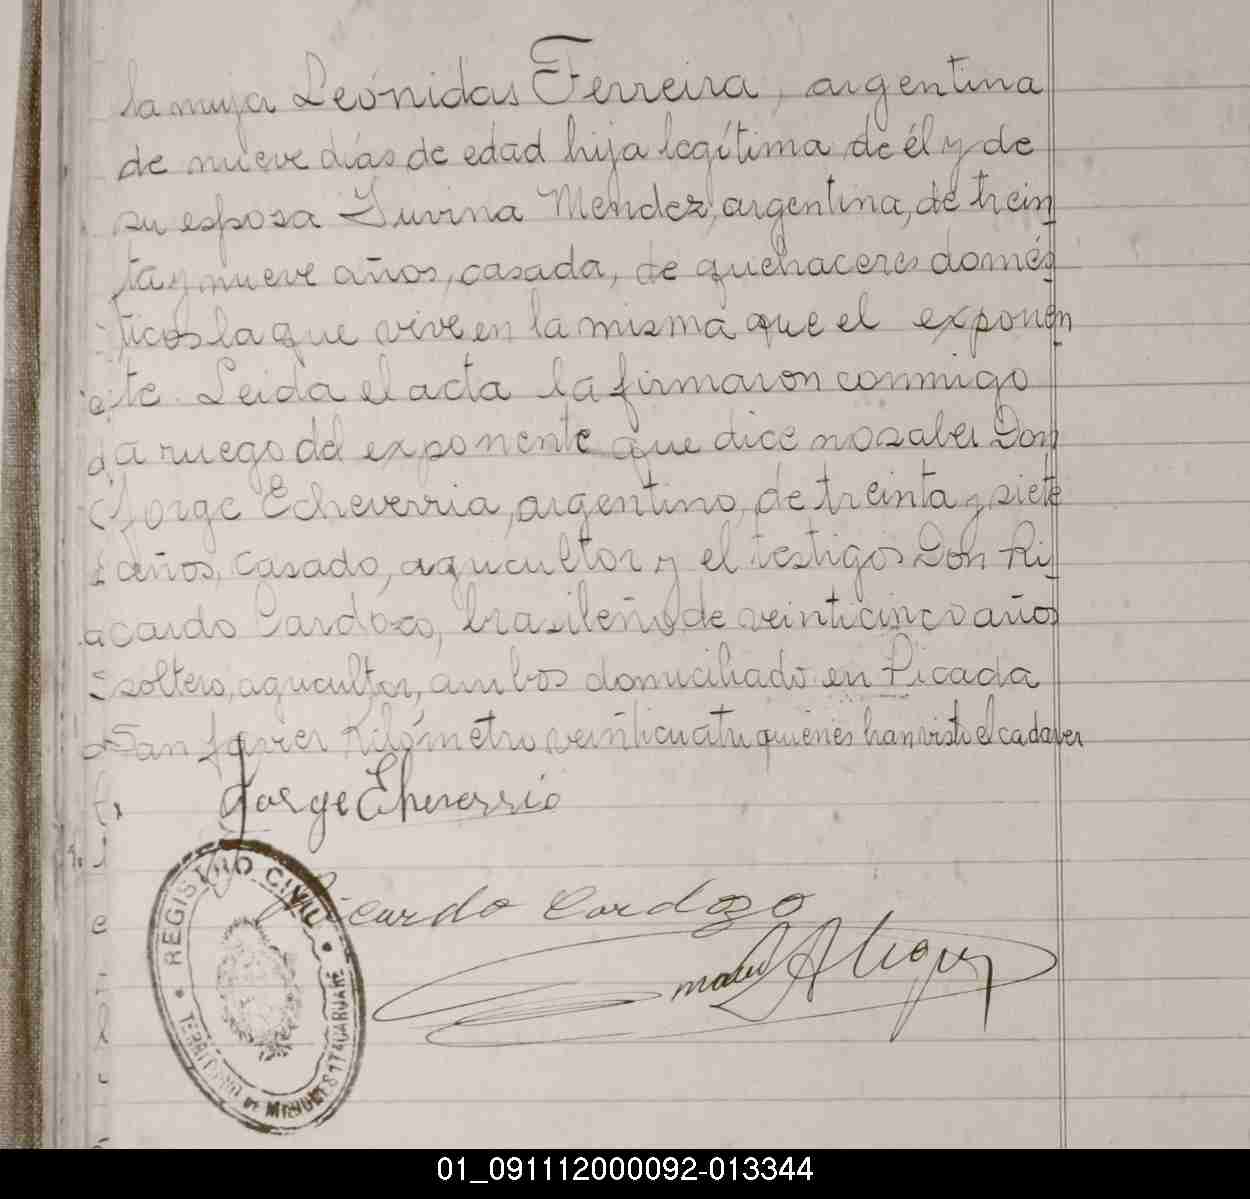 la mujer Leónidas Ferreira, argentina
de nueve días de edad hija legítima de él y de
su esposa Mendez, argentina, de trein
ta y nueve años, casada, de quehaceres domés
ticos la que vive en la misma que el exponen
te. Leida el acta la firmaron conmigo
a ruego del exponente que dice no saber Don
Jorge Echeverria, argentino, de treinta y siete
años, casado, agricultor y el testigo Don Ri
cardo Cardozo, brasileño, de veinticinco años
soltero, agricultor, ambos domiciliado en Picada
San Javier Kilómetro veinticuatro quienes han visto el cadaver
Jorge Echeverrio
Ricardo Cardozo
REGISTRO CIVIL
TERRITORIO DE MISIONES
01_091112000092-013344